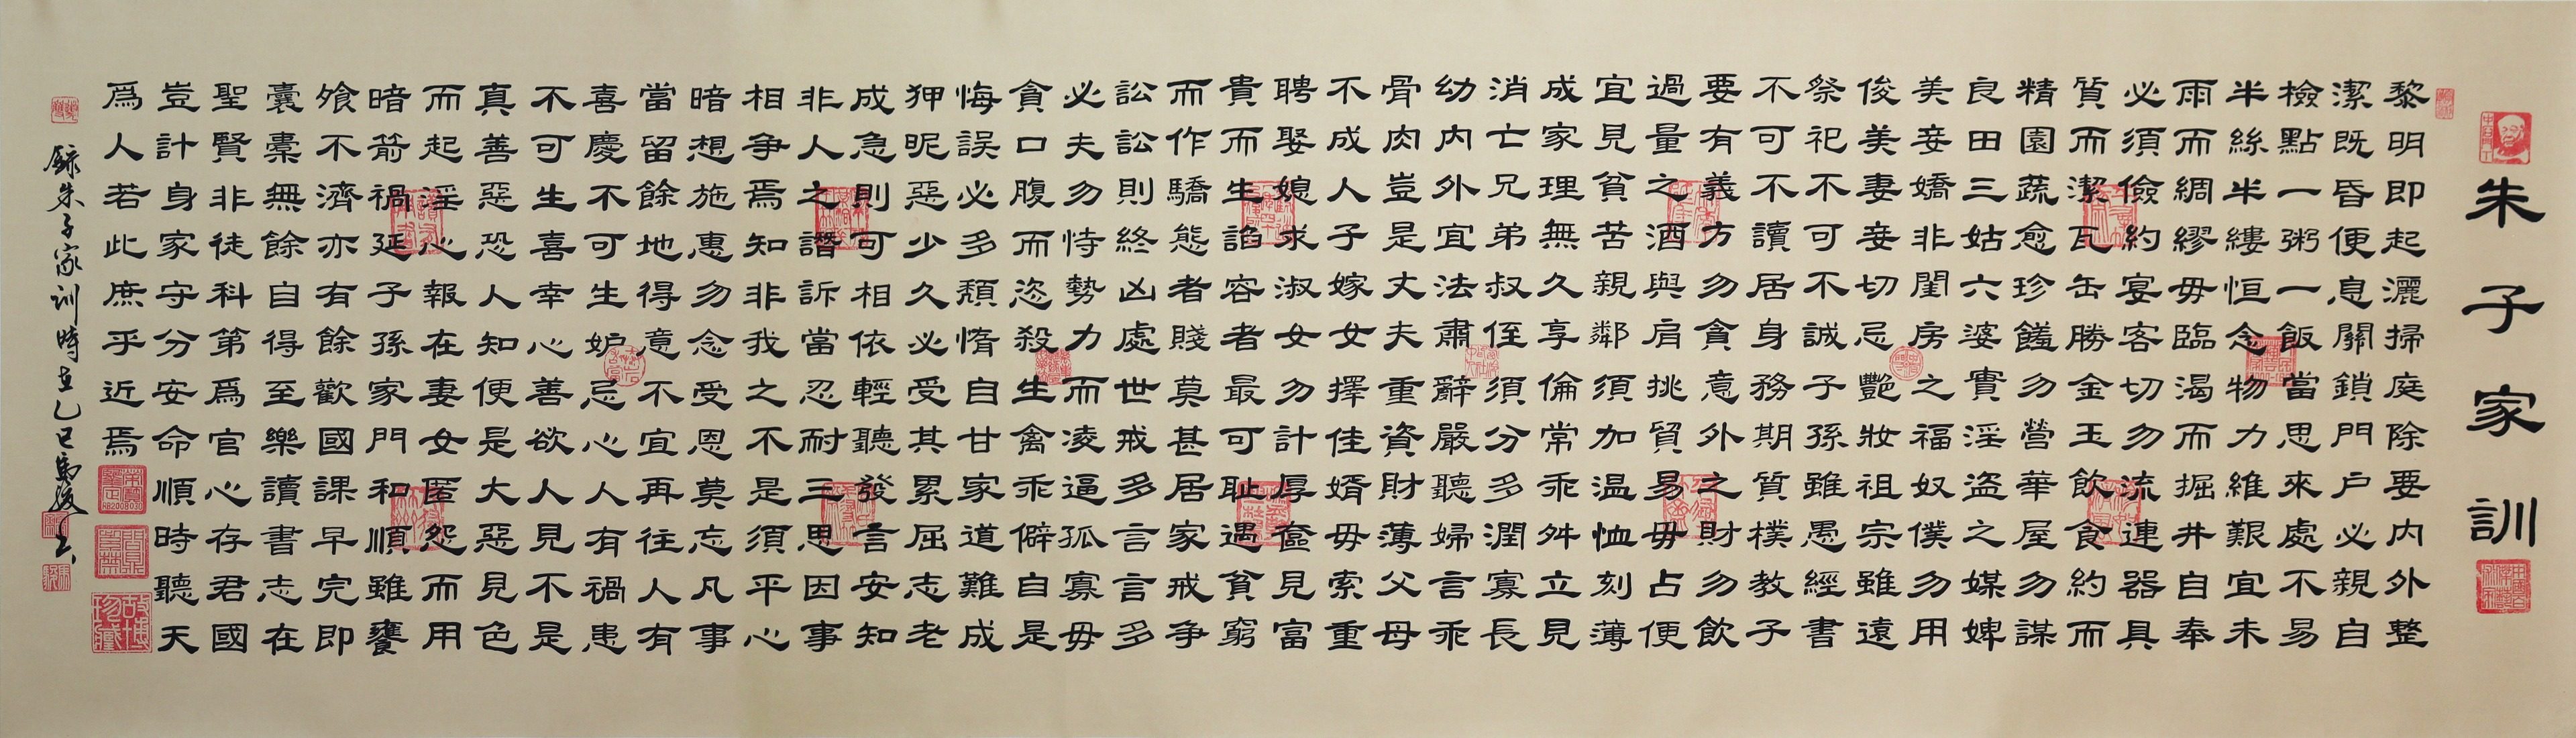 朱子家訓
黎明即起灑掃庭除要内外整
潔既昏便息關鎖門户必親自
檢點一粥一飯當思來處不易
半絲半縷恒念物力維艱宜未
雨而綢繆毋臨渴而掘井自奉
必須儉約宴客切勿流連器具
質而潔瓦缶勝金玉飲食約而
精園蔬愈珍饈勿營華屋勿謀
良田三姑六婆實淫盗之媒婢
美妾嬌非閨房之福奴僕勿用
俊美妻妾切忌艷妝祖宗雖遠
祭祀不可不誠子孫雖愚經書
不可不讀居身務期質樸教子
要有義方勿貪意外之財勿飲
過量之酒與肩挑貿易毋占便
宜見貧苦親鄰須加温恤刻薄
成家理無久享倫常乖舛立見
消亡兄弟叔侄須分多潤寡長
幼内外宜法肅辭嚴聽婦言乖
骨肉豈是丈夫重資財薄父母
不成人子嫁女擇佳婿毋索重
聘娶媳求淑女勿計厚奩見富
貴而生諂容者最可耻遇貧窮
而作驕態者賤莫甚居家戒争
訟訟則終凶處世戒多言言多
必夫勿恃勢力而凌逼孤寡毋
貪口腹而恣殺生禽乖僻自是
悔誤必多頹惰自甘家道難成
狎昵惡少久必受其累屈志老
成急則可相依輕聽發言安知
非人之譖訴當忍耐三思因事
相争焉知非我之不是須平心
暗想施惠勿念受恩莫忘凡事
當留餘地得意不宜再往人有
喜慶不可生妒忌心人有禍患
不可生喜幸心善欲人見不是
真善惡恐人知便是大惡見色
而起淫心報在妻女匿怨而用
暗箭禍延子孫家門和順雖饔
飧不濟亦有餘歡國課早完即
囊橐無餘自得至樂讀書志在
聖賢非徒科第爲官心存君國
豈計身家守分安命順時聽天
爲人若此庶乎近焉
録朱子家訓時在乙巳馬俊書